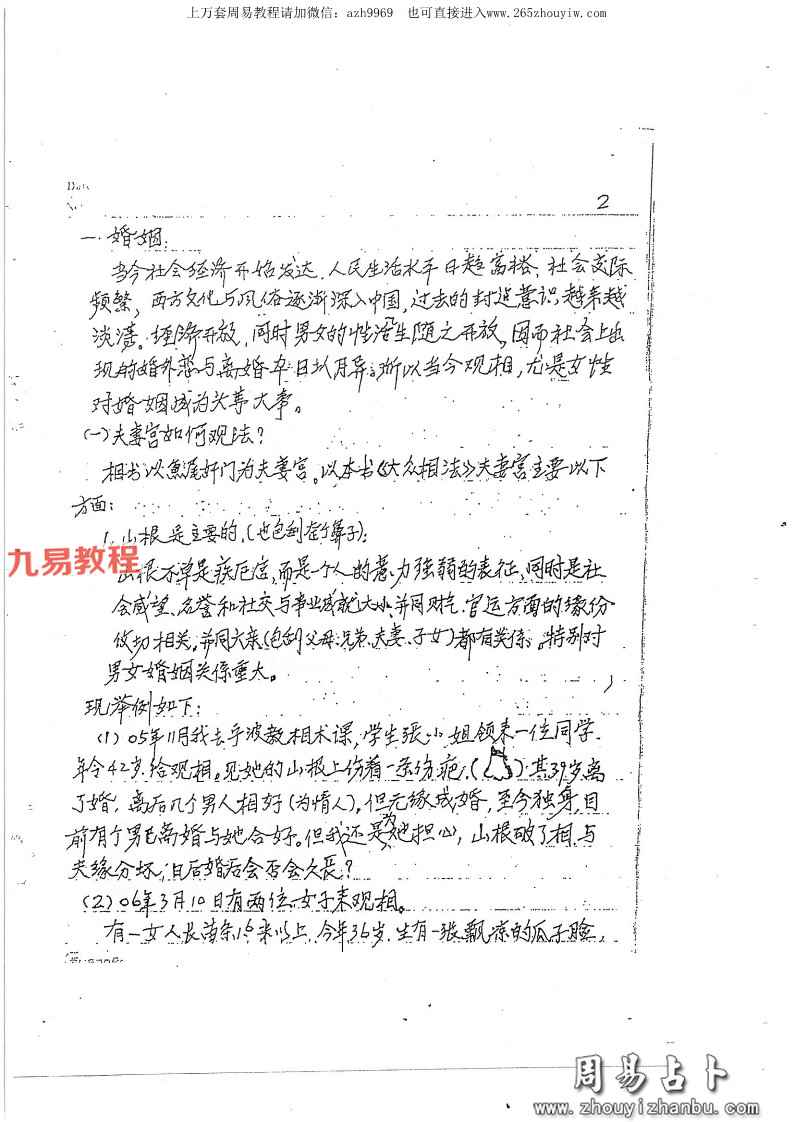 上万套周易教程请加微信：azh9969 也可直接进入www.265zhouyiw.com
2
一.婚姻:
当今社会经济开始发达.人民生活水平日趋富裕、社会交际
频繁,西方文化与风俗逐渐深入中国,过去的封建意识越来越
淡薄。经济开放,同时男女的性活生随之开放。因而社会上出
现的婚外恋与离婚率日以月异。所以当今观相,尤是女性
对婚姻成为头等大事。
(一)夫妻宫如何观法?
相书以鱼尾奸门为夫妻宫。以本书《大众相法》夫妻宫主要以下
方面:
1.山根是主要的,(也包刮整个鼻子);
九易教程
山根不单是疾厄宫,而是个人的意力强弱的表征,同时是社
会威望、名誉和社交与事业成就大小,并同财气.官运方面的缘份
攸切相关,并同六亲(包刮父母.兄弟.夫妻.子女)都有关係。特别对
男女婚姻关係重大。
现举例如下:
(1)05年11月我去宁波教相术课,学生張小姐领来一位同学.
年令42岁.给观相。见她的山根上伤着一条伤疤,( ).其39岁离
了婚,离后几个男人相好(为情人),但无缘成婚,至今独身,目
前有个男已离婚与她合好。但我还是为她担心,山根破了相,与
夫缘分坏,日后婚后会否会久長?
(2)06年3月10日有两位女子来观相。
有一女人長苗条1.6米以上.今年36岁.生有一張飘凉的瓜子脸,
周易占卜
www.zhouyizhanbu.com